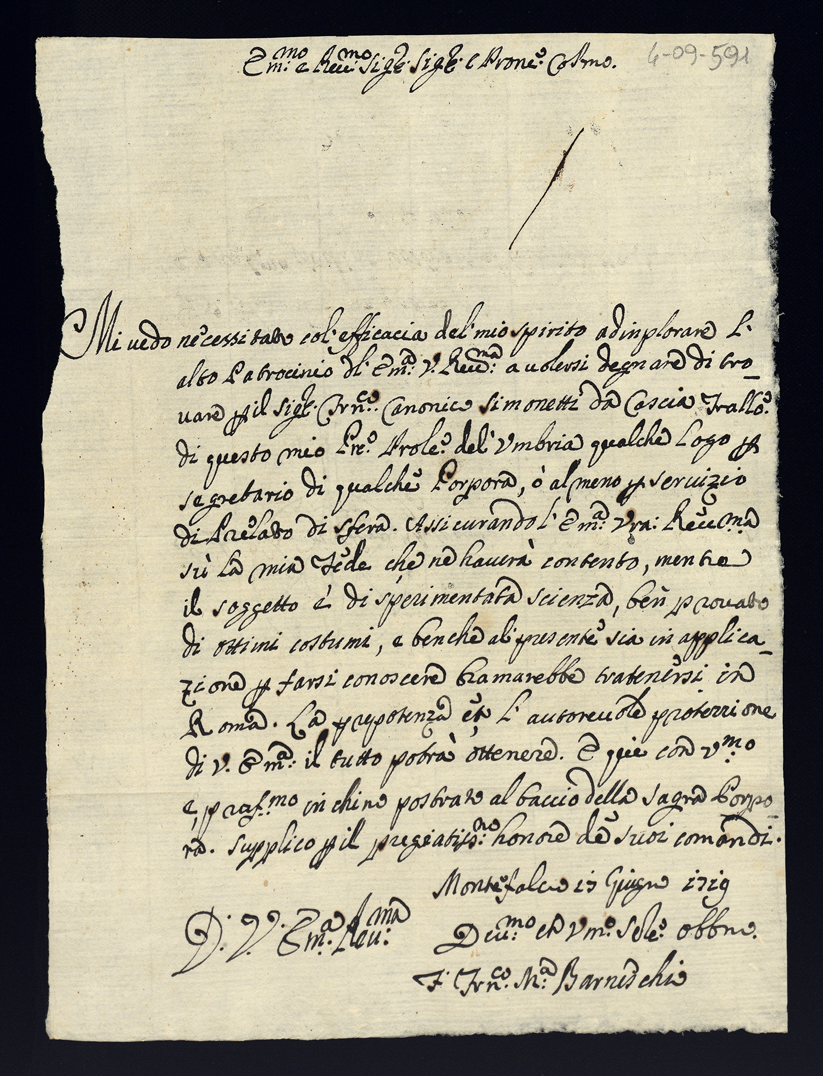 Em:mo e Reu:mo Sigr: Sigr: e Prone: Colmo.
4-09-591
Mi uedo necessitato col'efficacia del'mio spirito ad inplorare l'
alto Patrocinio dl' Em:a V. Reu:ma a uolersi degnare di tro-
uare p il Sigr: Frnco: Canonico Simonetti da Cascia Frallo:
di questo mio Pre: Prole: del'Vmbria qualche logo p
segretario di qualche Porpora, ò al meno p seruizio
di Prelato di sfera. Assicurando l'Em:a Vra: Reue:ma
sù la mia Fede che ne hauerà contento, mentre
il soggetto è di sperimentata scienza, ben prouato
di ottimi costumi, e benche al presente sia in applica-
zione p farsi conoscere bramarebbe tratenersi in
Roma. La prepotenza et l'autoreuole protezzione
di V. Em:a il tutto potrà ottenere. E qui con V:mo
e, prof:mo inchino postrato al baccio della sagra Porpo-
ra. supplico p il pregiatiss:mo honore de suoi comandi.
Montefalco 17 Giugno 1719
D. V. Em:a Reu:ma
Deu:mo et Vmo: Sele: obbmo.
F. Frnco: Ma: Barneschi